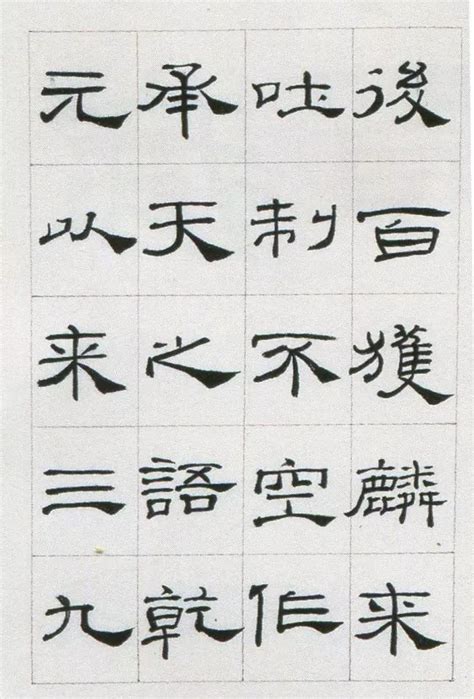 後百獲麟来
吐制不空作
承天之語乾
元以来三九